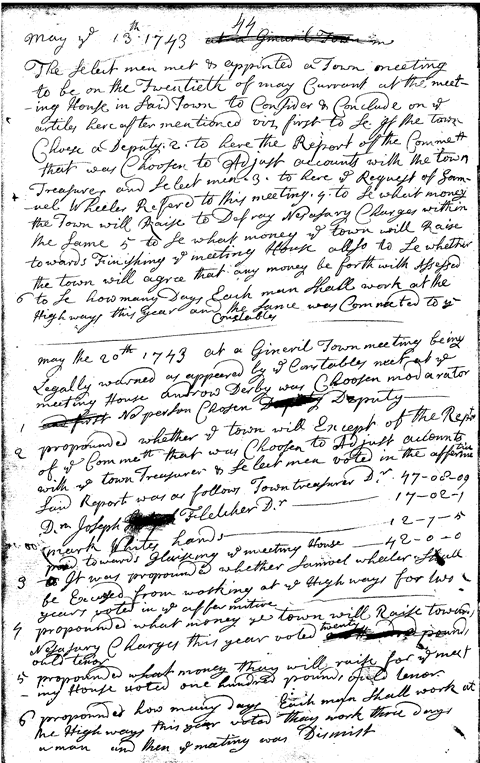 44
may ye 13th 1743
The Select men met & appinted a Town meeting
to be on the Twentieth of may Currant at the meet-
-ing House in Said Town to Consider & Conclude on ye
artiles here after mentioned viz first to Se If the town
Choose a Deputy. 2. to here the Report of the Commett
that was Choosen to Adjust accounts with the town
Treasurer and Select men. 3. to here ye Request of Sam-
uel Wheeler Refered to this meeting. 4. to Se whait money
the Town will Raise to Defray Nesasary Charges within
the Same 5 to Se what money ye town will Raise
towards Finishing ye meeting House allso to Se whether
the town will agree that any money be forth with Assesed
6 to Se how many Days Each man Shall work at the
High ways this year and the Same was Commeted to ye
Constables
may the 20th 1743 at a Gineril Town meeting being
Legally warned as appeared by ye Constables meet at ye
meeting House androw Derby was Choosen modarator
1 No person Chosen Deputy
2 propounded whether ye town will Except of the Report
of ye Commett that was Choosen to Adjust accounts
with ye town Treasurer & Select men voted in the affermetive
Said Report was as follows Town treasurer Dr 47-08-09
Dn Joseph Fletcher Dr 17-02-1
mark Whites hands 12-7-5
paid towards Glaising ye meeting House 42-0-0
3 It was propounded whether Samuel wheeler Shall
be Excused from working at ye High ways for two
years voted in ye affermitive
4 propounded what money ye town will Raise toward
Nesasary Charges this year voted twenty pounds
ould tenor
5 propounded what money thay will raise for ye meet
ing House voted one hundred pounds ould tenor
6 propounded how many days Each man Shall work at
the High ways this year voted thay work three days
a man and then ye meating was Dismist